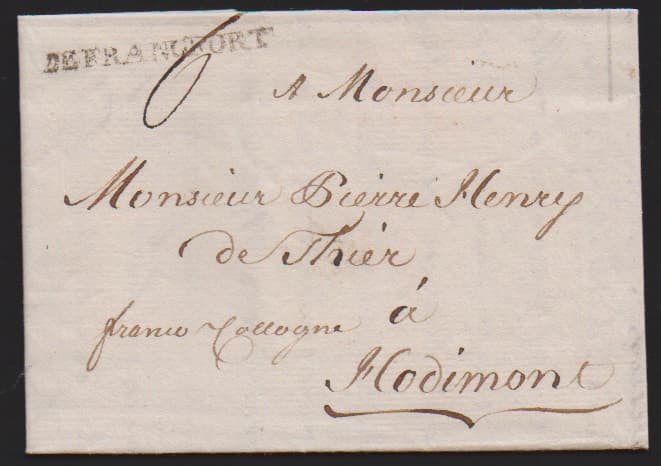 DE FRANCFORT
6
A Monsieur
Monsieur Pierre Henry
de Thiér
franco Collogne
á
Hodimont